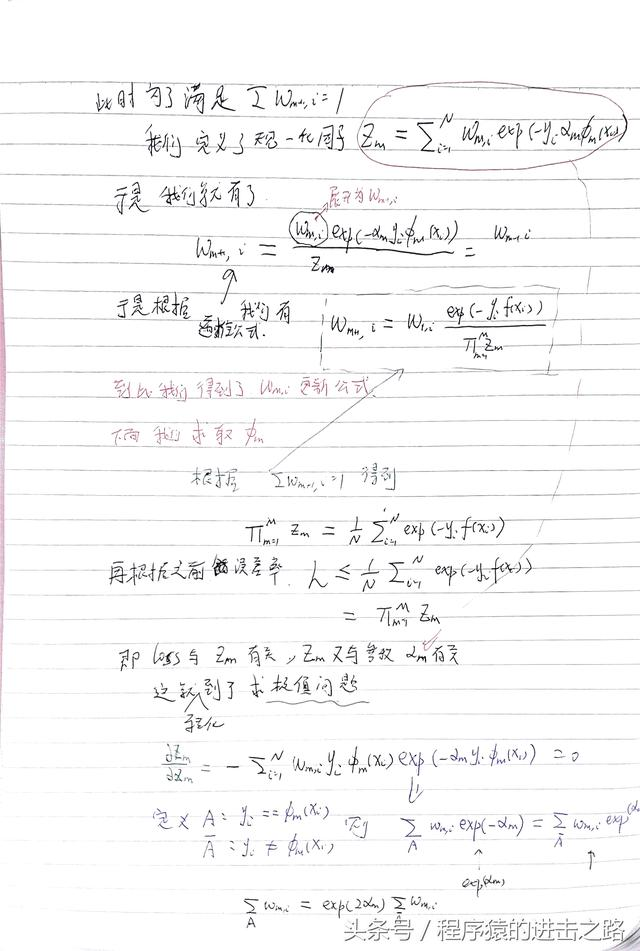 此时为了满足 Σ W_{m+1,i} = 1
我们定义了规一化因子 Z_m = Σ_{i=1}^N W_{m,i} exp(-y_i α_m φ_m(x_i))
于是我们就有了
展开为 W_{m,i}
W_{m+1,i} = W_{m,i} exp(-α_m y_i φ_m(x_i)) / Z_m = W_{m+1,i}
于是根据 递推公式 我们有 W_{m+1,i} = W_{1,i} exp(-y_i f(x_i)) / Π_{m=1}^M Z_m
到此我们得到了 W_{m,i} 更新公式.
下面我们求取 φ_m
根据 ΣW_{m+1,i}=1 得到
Π_{m=1}^M Z_m = 1/N Σ_{i=1}^N exp(-y_i f(x_i))
再根据之前 误差率. L ≤ 1/N Σ_{i=1}^N exp(-y_i f(x_i))
= Π_{m=1}^M Z_m
即 loss 与 Z_m 有关, Z_m 又与参数 α_m 有关
这就转化到了求极值问题
∂Z_m/∂α_m = - Σ_{i=1}^N W_{m,i} y_i φ_m(x_i) exp(-α_m y_i φ_m(x_i)) = 0
定义 A : y_i == φ_m(x_i) 则 Σ_A w_{m,i} exp(-α_m) = Σ_Ā w_{m,i} exp(α
Ā : y_i ≠ φ_m(x_i)
exp(α_m)
Σ_A w_{m,i} = exp(2α_m) Σ_Ā w_{m,i}
头条号 / 程序猿的进击之路